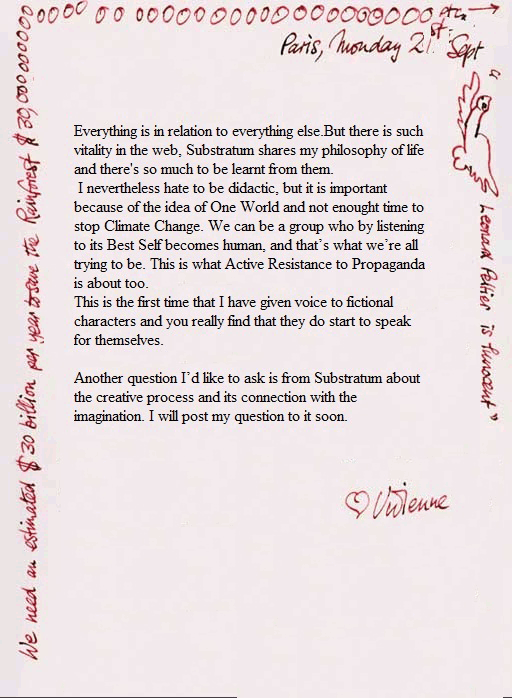 We need an estimated $30 billion per year to save the Rainforest $30,000000000
0000 00 00000000000000000000 etc. →
Paris, Monday 21st. Sept
"Leonard Peltier is Innocent"
Everything is in relation to everything else.But there is such
vitality in the web, Substratum shares my philosophy of life
and there's so much to be learnt from them.
I nevertheless hate to be didactic, but it is important
because of the idea of One World and not enought time to
stop Climate Change. We can be a group who by listening
to its Best Self becomes human, and that's what we're all
trying to be. This is what Active Resistance to Propaganda
is about too.
This is the first time that I have given voice to fictional
characters and you really find that they do start to speak
for themselves.
Another question I'd like to ask is from Substratum about
the creative process and its connection with the
imagination. I will post my question to it soon.
Vivienne